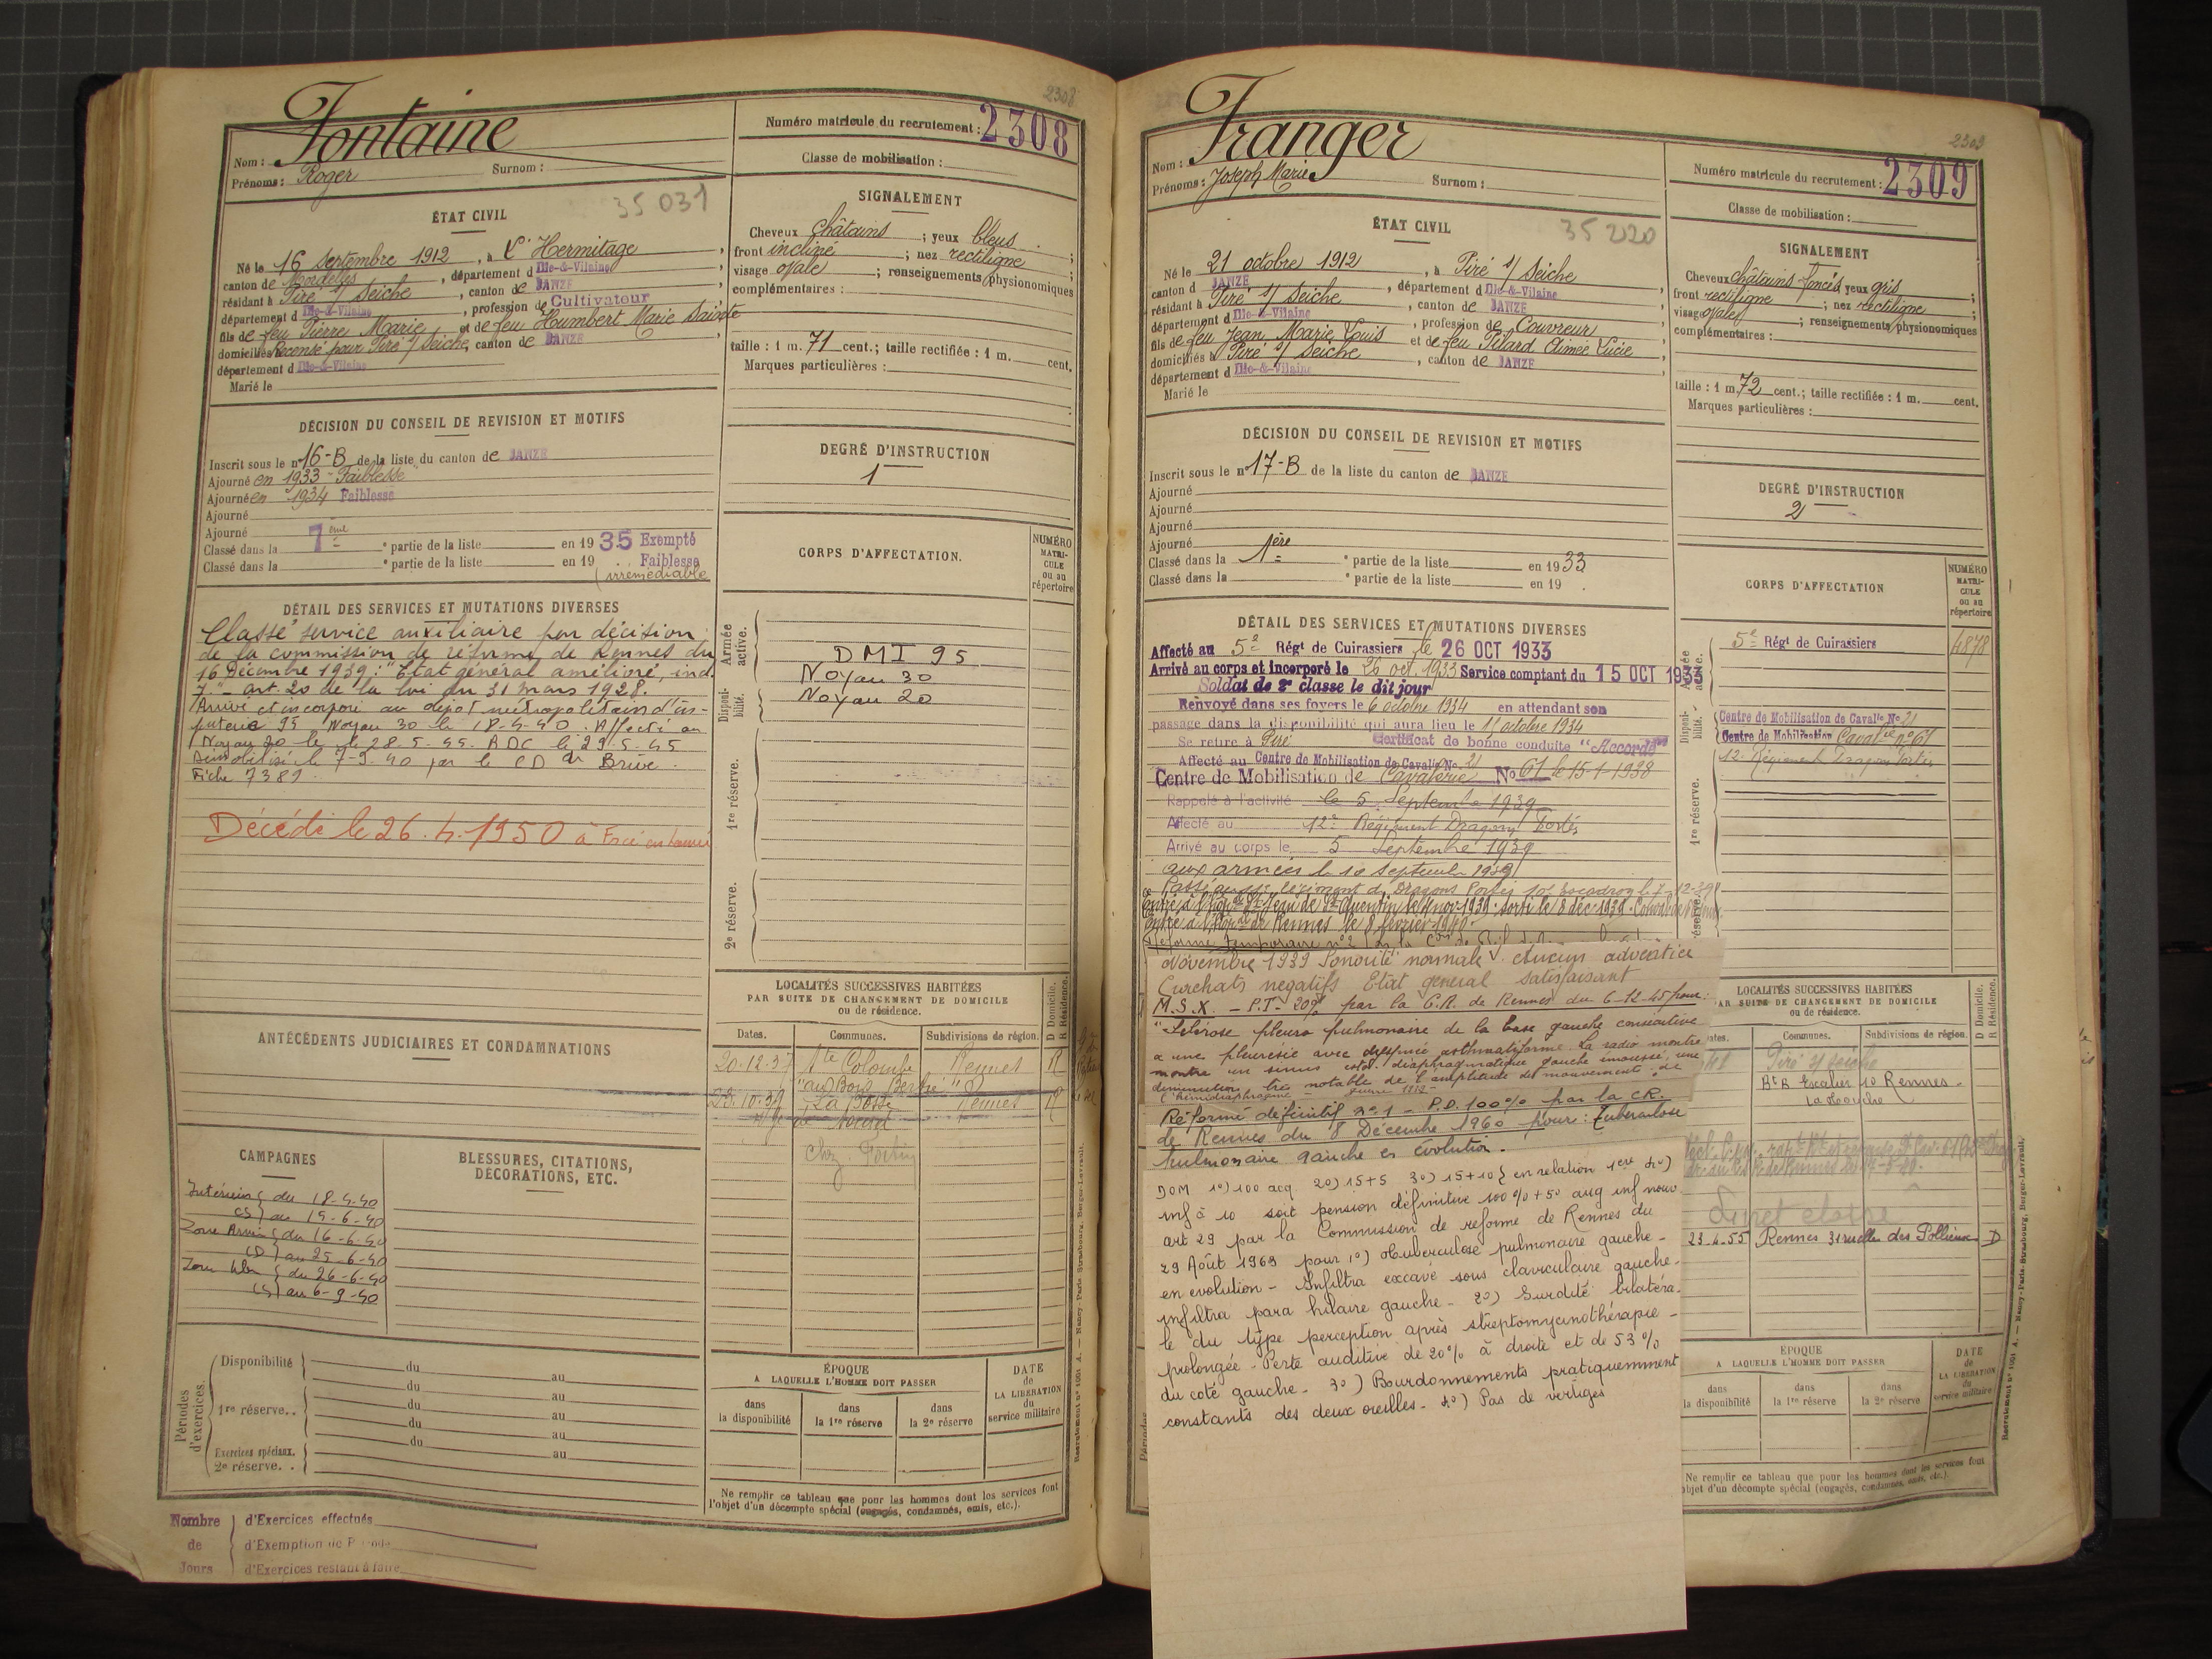 2308
Nom : Fontaine
Prénoms : Roger Surnom :
Numéro matricule du recrutement : 2308
Classe de mobilisation :
ÉTAT CIVIL
35 031
Né le 16 septembre 1912, à L'Hermitage
canton de Mordelles, département d Ille-&-Vilaine
résidant à Piré s/ Seiche, canton de JANZE
département d Ille-&-Vilaine, profession de Cultivateur
fils de feu Pierre Marie et de feu Humbert Marie Sainte
domiciliés Recensé pour Piré s/ Seiche, canton de JANZE
département d Ille-&-Vilaine
Marié le
SIGNALEMENT
Cheveux châtains ; yeux bleus
front incliné ; nez rectiligne ;
visage ovale ; renseignements physionomiques
complémentaires :
taille : 1 m. 71 cent.; taille rectifiée : 1 m. cent.
Marques particulières :
DÉCISION DU CONSEIL DE REVISION ET MOTIFS
Inscrit sous le n° 16-B de la liste du canton de JANZE
Ajourné en 1933 - Faiblesse
Ajourné en 1934 Faiblesse
Ajourné
Ajourné
Classé dans la 7ème partie de la liste en 1935 Exempté
Classé dans la partie de la liste en 19 Faiblesse
(irrémédiable
DEGRÉ D'INSTRUCTION
1
DÉTAIL DES SERVICES ET MUTATIONS DIVERSES
Classé service auxiliaire par décision
de la commission de réforme de Rennes du
16 Décembre 1939 : "Etat général amélioré, ind.
7" - art. 20 de la loi du 31 mars 1928.
Arrivé et incorporé au dépôt métropolitain d'in-
fanterie 95 Noyau 30 le 18-4-40. Affecté au
Noyau 20 le 28.5.45. RDC le 29.5.45
Démobilisé le 7-9-40 par le CD de Brive.
Fiche 7381.
Décédé le 26.4.1950 à
CORPS D'AFFECTATION.
NUMÉRO MATRI-CULE ou au répertoire
Armée active.
DMI 95
Noyau 30
Disponi-bilité.
Noyau 20
1re réserve.
2e réserve.
ANTÉCÉDENTS JUDICIAIRES ET CONDAMNATIONS
LOCALITÉS SUCCESSIVES HABITÉES
PAR SUITE DE CHANGEMENT DE DOMICILE
ou de résidence.
D Domicile. R Résidence.
Dates. Communes. Subdivisions de région.
20.12.37 Ste Colombe Rennes R
"au Bois Berthé"
La Bosse Rennes R
CAMPAGNES
Intérieur { du 18-4-40
CS) au 15-6-40
Zone Armées { du 16-6-40
(D) au 25-6-40
Zone libre { du 26-6-40
CS) au 6-9-40
BLESSURES, CITATIONS,
DÉCORATIONS, ETC.
Périodes d'exercices.
Disponibilité du au
du au
1re réserve.. du au
du au
Exercices spéciaux. du au
2e réserve. .
ÉPOQUE
A LAQUELLE L'HOMME DOIT PASSER
dans la disponibilité
dans la 1re réserve
dans la 2e réserve
DATE de LA LIBÉRATION du service militaire
Ne remplir ce tableau que pour les hommes dont les services font
l'objet d'un décompte spécial (engagés, condamnés, omis, etc.).
Recrutement n° 1051 A. — Nancy-Paris-Strasbourg, Berger-Levrault.
Nombre d'Exercices effectués
de d'Exemption de Période
Jours d'Exercices restant à faire
2309
Nom : Franger
Prénoms : Joseph Marie Surnom :
Numéro matricule du recrutement : 2309
Classe de mobilisation :
ÉTAT CIVIL
35 220
Né le 21 octobre 1912, à Piré s/ Seiche
canton d JANZE, département d Ille-&-Vilaine
résidant à Piré s/ Seiche, canton de JANZE
département d Ille-&-Vilaine, profession de Couvreur
fils de feu Jean Marie Louis et de feu Pilard Aimée Lucie
domiciliés à Piré s/ Seiche, canton de JANZE
département d Ille-&-Vilaine
Marié le
SIGNALEMENT
Cheveux châtains foncés yeux gris ;
front rectiligne ; nez rectiligne ;
visage ovale ; renseignements physionomiques
complémentaires :
taille : 1 m. 72 cent.; taille rectifiée : 1 m. cent.
Marques particulières :
DÉCISION DU CONSEIL DE REVISION ET MOTIFS
Inscrit sous le n° 17-B de la liste du canton de JANZE
Ajourné
Ajourné
Ajourné
Ajourné
Classé dans la 1ère partie de la liste en 1933
Classé dans la partie de la liste en 19 .
DEGRÉ D'INSTRUCTION
2
DÉTAIL DES SERVICES ET MUTATIONS DIVERSES
Affecté au 5e Régt de Cuirassiers le 26 OCT 1933
Arrivé au corps et incorporé le 26 oct. 1933 Service comptant du 15 OCT 1933
Soldat de 2e classe le dit jour
Renvoyé dans ses foyers le 6 octobre 1934 en attendant son
passage dans la disponibilité qui aura lieu le 15 octobre 1934
Se retire à Piré Certificat de bonne conduite "Accordé"
Affecté au Centre de Mobilisation de Cavalie No 21
Centre de Mobilisation de Cavalerie No 61 le 15-1-1938
Rappelé à l'activité le 5 Septembre 1939
Affecté au 12e Régiment Dragons Portés
Arrivé au corps le 5 Septembre 1939
aux armées le 10 Septembre 1939
Passé au Régiment de Dragons Portés 10e Escadron le 7-12-39
Entré à l'Hôpital St Jean de St Quentin le 4 nov 1939. sorti le 8 déc. 1939.
Entré à l'Hôpital de Rennes le 8 février 1940.
Réforme temporaire n°2
Novembre 1939 Sonorité normale. Aucun adventice
Crachats négatifs Etat general satisfaisant
M.S.X. - P.T - 20% par la C.R. de Rennes du 6-12-45 pour :
"Sclérose pleuro pulmonaire de la base gauche consécutive
a une pleurésie avec dyspnée asthmatiforme. La radio montre
montre un sinus costo diaphragmatique gauche émoussé, une
diminution très notable de l'amplitude du mouvement de
l'hémidiaphragme
Réformé définitif n°1 - P.D. 100% par la C.R.
de Rennes du 8 Décembre 1960 pour : Tuberculose
pulmonaire gauche en évolution.
DOM 1°) 100 acq 2°) 15+5 3°) 15+10 } en relation 1ere 4°)
inf à 10 soit pension définitive 100% + 5° aug inf nouv.
art 29 par la Commission de reforme de Rennes du
29 Août 1969 pour 1°) Tuberculose pulmonaire gauche -
en evolution - Infiltra excavé sous claviculaire gauche -
infiltra para hilaire gauche - 2°) Surdité bilatéra-
le du type perception après streptomycinothérapie -
prolongée - Perte auditive de 20% à droite et de 53%
du coté gauche - 3°) Bourdonnements pratiquemment
constants des deux oreilles - 4°) Pas de vertiges
CORPS D'AFFECTATION
NUMÉRO MATRI-CULE ou au répertoire
5e Régt de Cuirassiers 4878
Disponi-bilité.
Centre de Mobilisation de Cavalie No 21
Centre de Mobilisation Cavalie n° 61
12e Régiment Dragons Portés
1re réserve.
LOCALITÉS SUCCESSIVES HABITÉES
AR SUITE DE CHANGEMENT DE DOMICILE
ou de résidence.
D Domicile. R Résidence.
ates. Communes. Subdivisions de région.
Piré s/ Seiche
Bt B Escalier 10 Rennes.
La Touche
23.4.55 Rennes 31 ruelle des Pollieux D
ÉPOQUE
A LAQUELLE L'HOMME DOIT PASSER
dans la disponibilité
dans la 1re réserve
dans la 2e réserve
DATE de LA LIBÉRATION du service militaire
Ne remplir ce tableau que pour les hommes dont les services font
objet d'un décompte spécial (engagés, condamnés, omis, etc.).
Recrutement n° 1051 A. — Nancy-Paris-Strasbourg, Berger-Levrault.